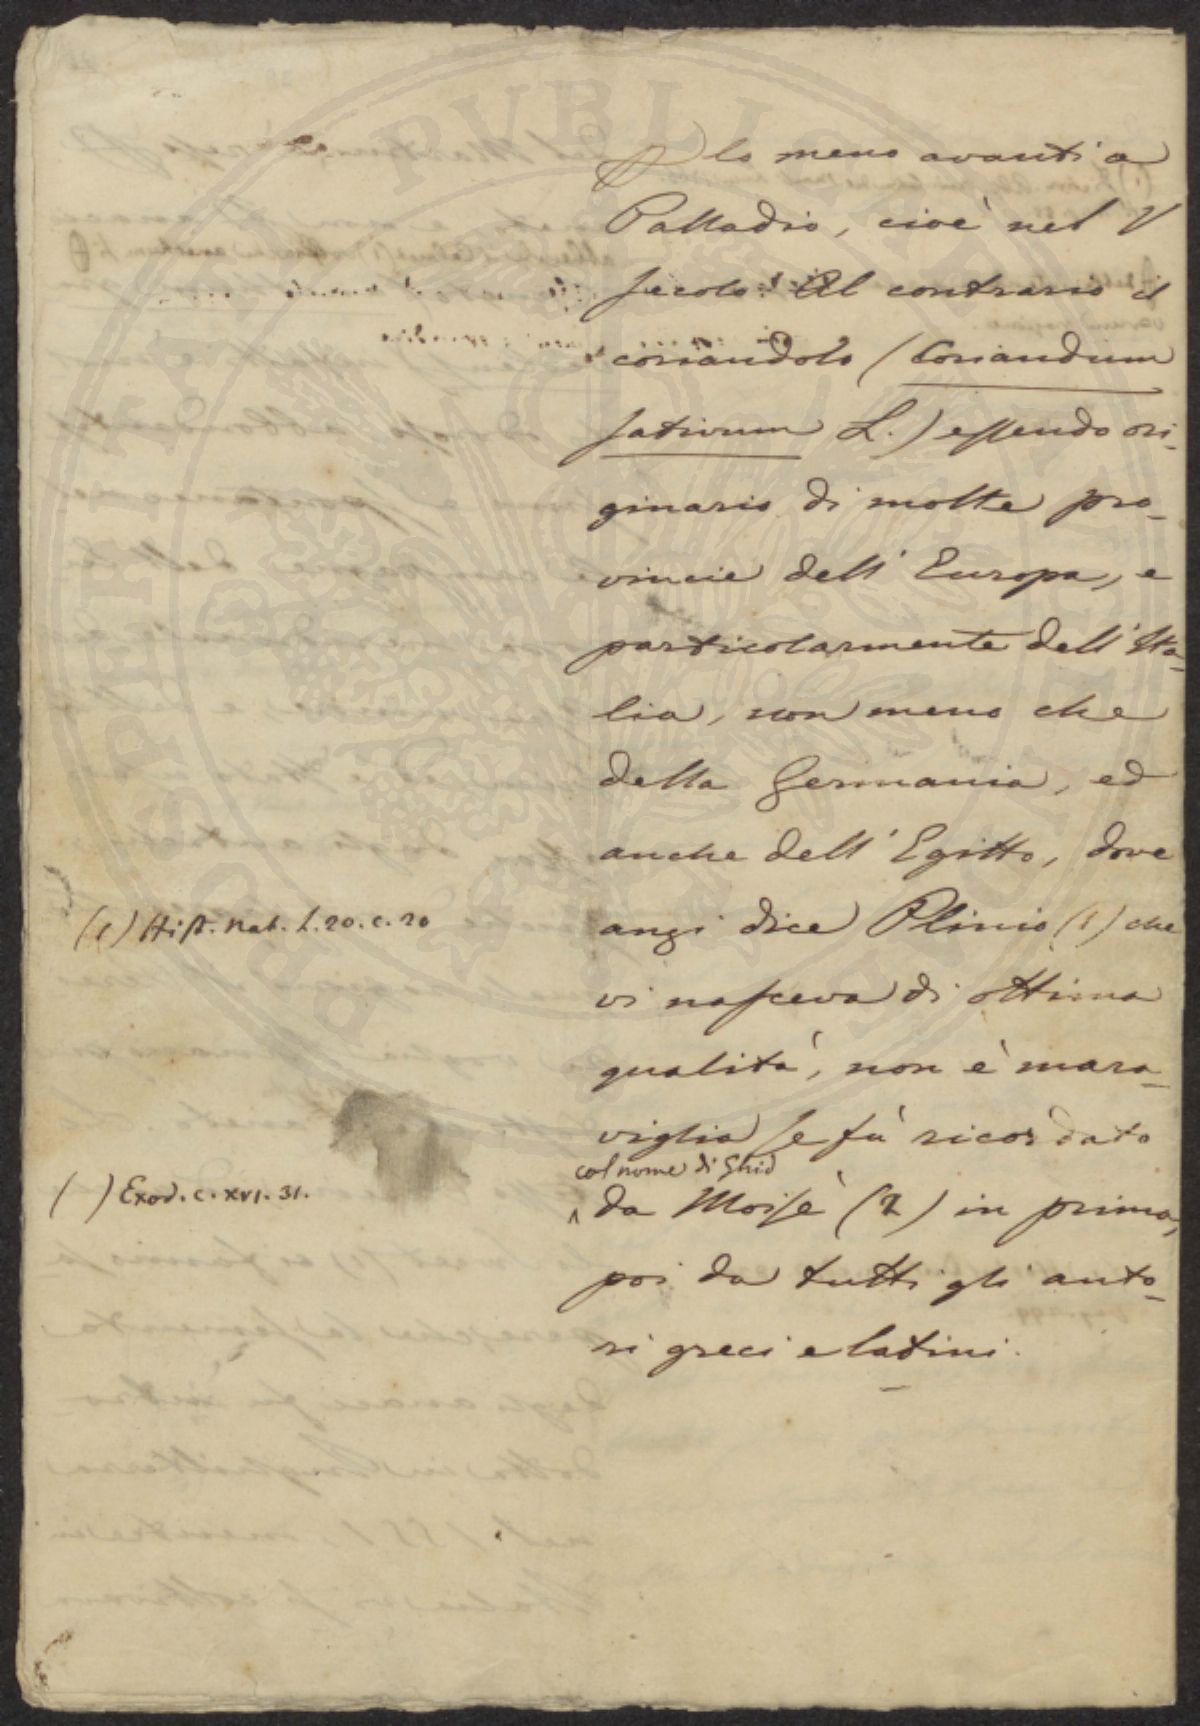 lo meno avanti a
Palladio, cioè nel V
secolo. Al contrario il
coriandolo (Coriandum
sativum L.) essendo ori-
ginario di molte pro-
vincie dell' Europa, e
particolarmente dell' Ita-
lia, non meno che
della Germania, ed
anche dell' Egitto, dove
anzi dice Plinio (1) che
vi nasceva di ottima
qualità, non è mara-
viglia se fù ricordato
col nome di Ghid
da Moisè (2) in prima,
poi da tutti gli auto-
ri greci e latini.
(1) Hist. Nat. L. 20. c. 20
( ) Exod. c. XVI. 31.